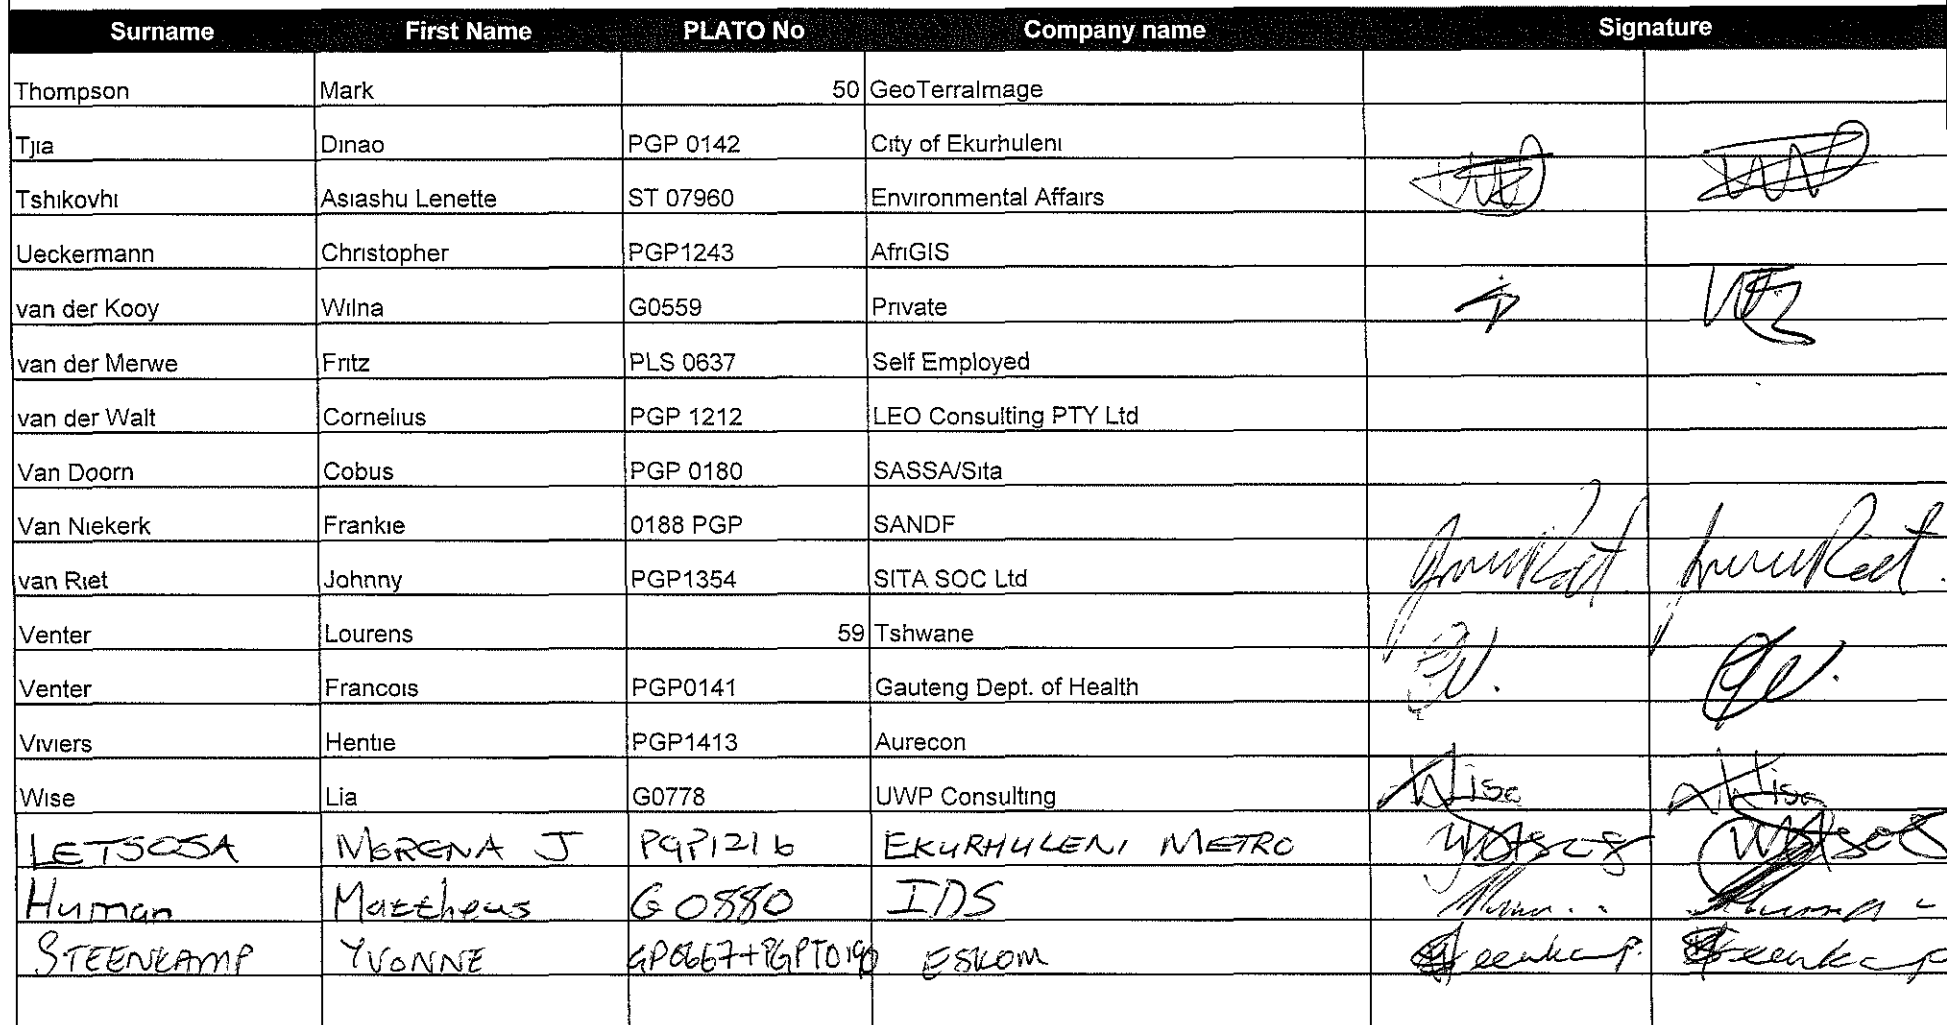 Surname First Name PLATO No Company name Signature
Thompson Mark 50 GeoTerraImage
Tjia Dinao PGP 0142 City of Ekurhuleni
Tshikovhi Asiashu Lenette ST 07960 Environmental Affairs
Ueckermann Christopher PGP1243 AfriGIS
van der Kooy Wilna G0559 Private
van der Merwe Fritz PLS 0637 Self Employed
van der Walt Cornelius PGP 1212 LEO Consulting PTY Ltd
Van Doorn Cobus PGP 0180 SASSA/Sita
Van Niekerk Frankie 0188 PGP SANDF
van Riet Johnny PGP1354 SITA SOC Ltd
Venter Lourens 59 Tshwane
Venter Francois PGP0141 Gauteng Dept. of Health
Viviers Hentie PGP1413 Aurecon
Wise Lia G0778 UWP Consulting Wise Wise
LETSOSA MERENA J PGP1216 EKURHULENI METRO
Human Mattheus G0880 IDS
STEENKAMP YVONNE ESKOM Steenkamp. Steenkamp